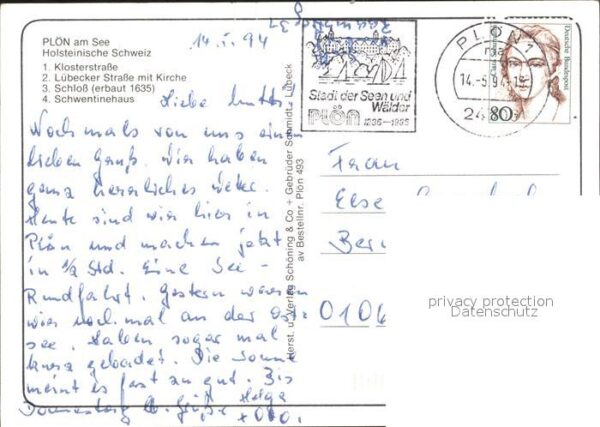 PLÖN am See
Holsteinische Schweiz
1. Klosterstraße
2. Lübecker Straße mit Kirche
3. Schloß (erbaut 1635)
4. Schwentinehaus
14.5.94
Liebe Mutti!
Nochmals von uns einen
lieben Gruß. Wir haben
ganz herrliches Wetter.
Heute sind wir hier in
Plön und machen jetzt
in 1/2 Std. Eine See-
Rundfahrt. Gestern waren
wir noch mal an der Ost-
see. Haben sogar mal
kurz gebadet. Die Sonne
meint es fast zu gut. Bis
Donnerstag Grüße Helga
Herst. u. Verlag Schöning & Co + Gebrüder Schmidt, Lübeck
av Bestellnr. Plön 493
Stadt der Seen und
Wälder
PLÖN 1236-1986
PLÖN 1
14.-5.94-15
24
Deutsche Bundespost
80
Frau
Else
Ber
0106
privacy protection
Datenschutz